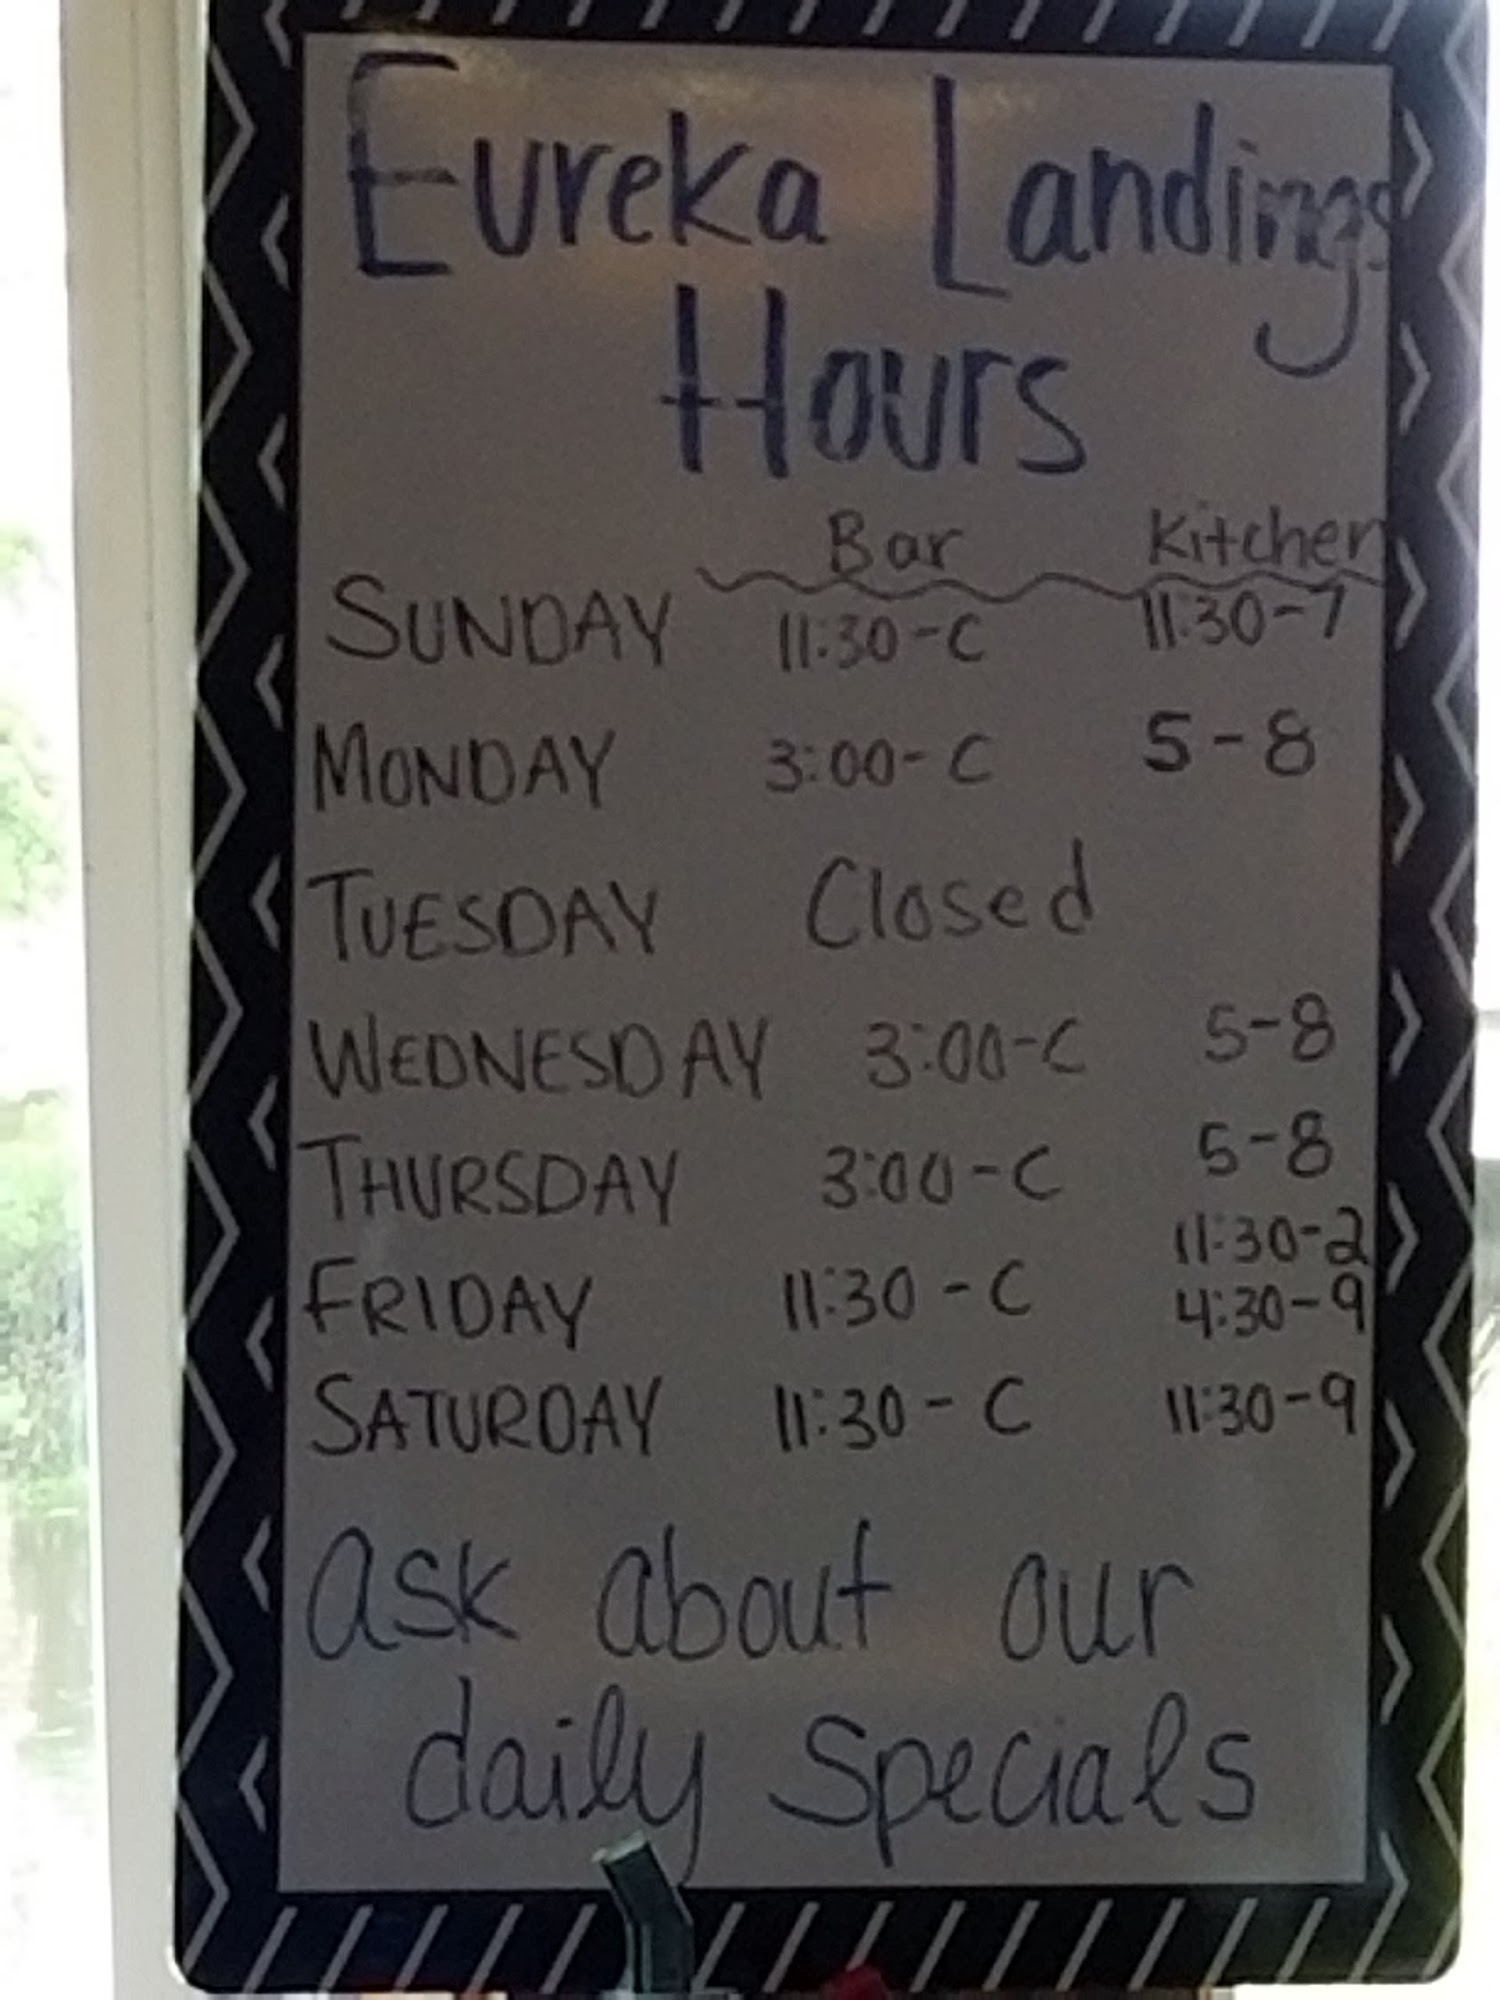 Eureka Landings
Hours
Bar Kitchen
SUNDAY 11:30-C 11:30-7
MONDAY 3:00-C 5-8
TUESDAY Closed
WEDNESDAY 3:00-C 5-8
THURSDAY 3:00-C 5-8
11:30-2
FRIDAY 11:30-C 4:30-9
SATURDAY 11:30-C 11:30-9
ask about our
daily specials